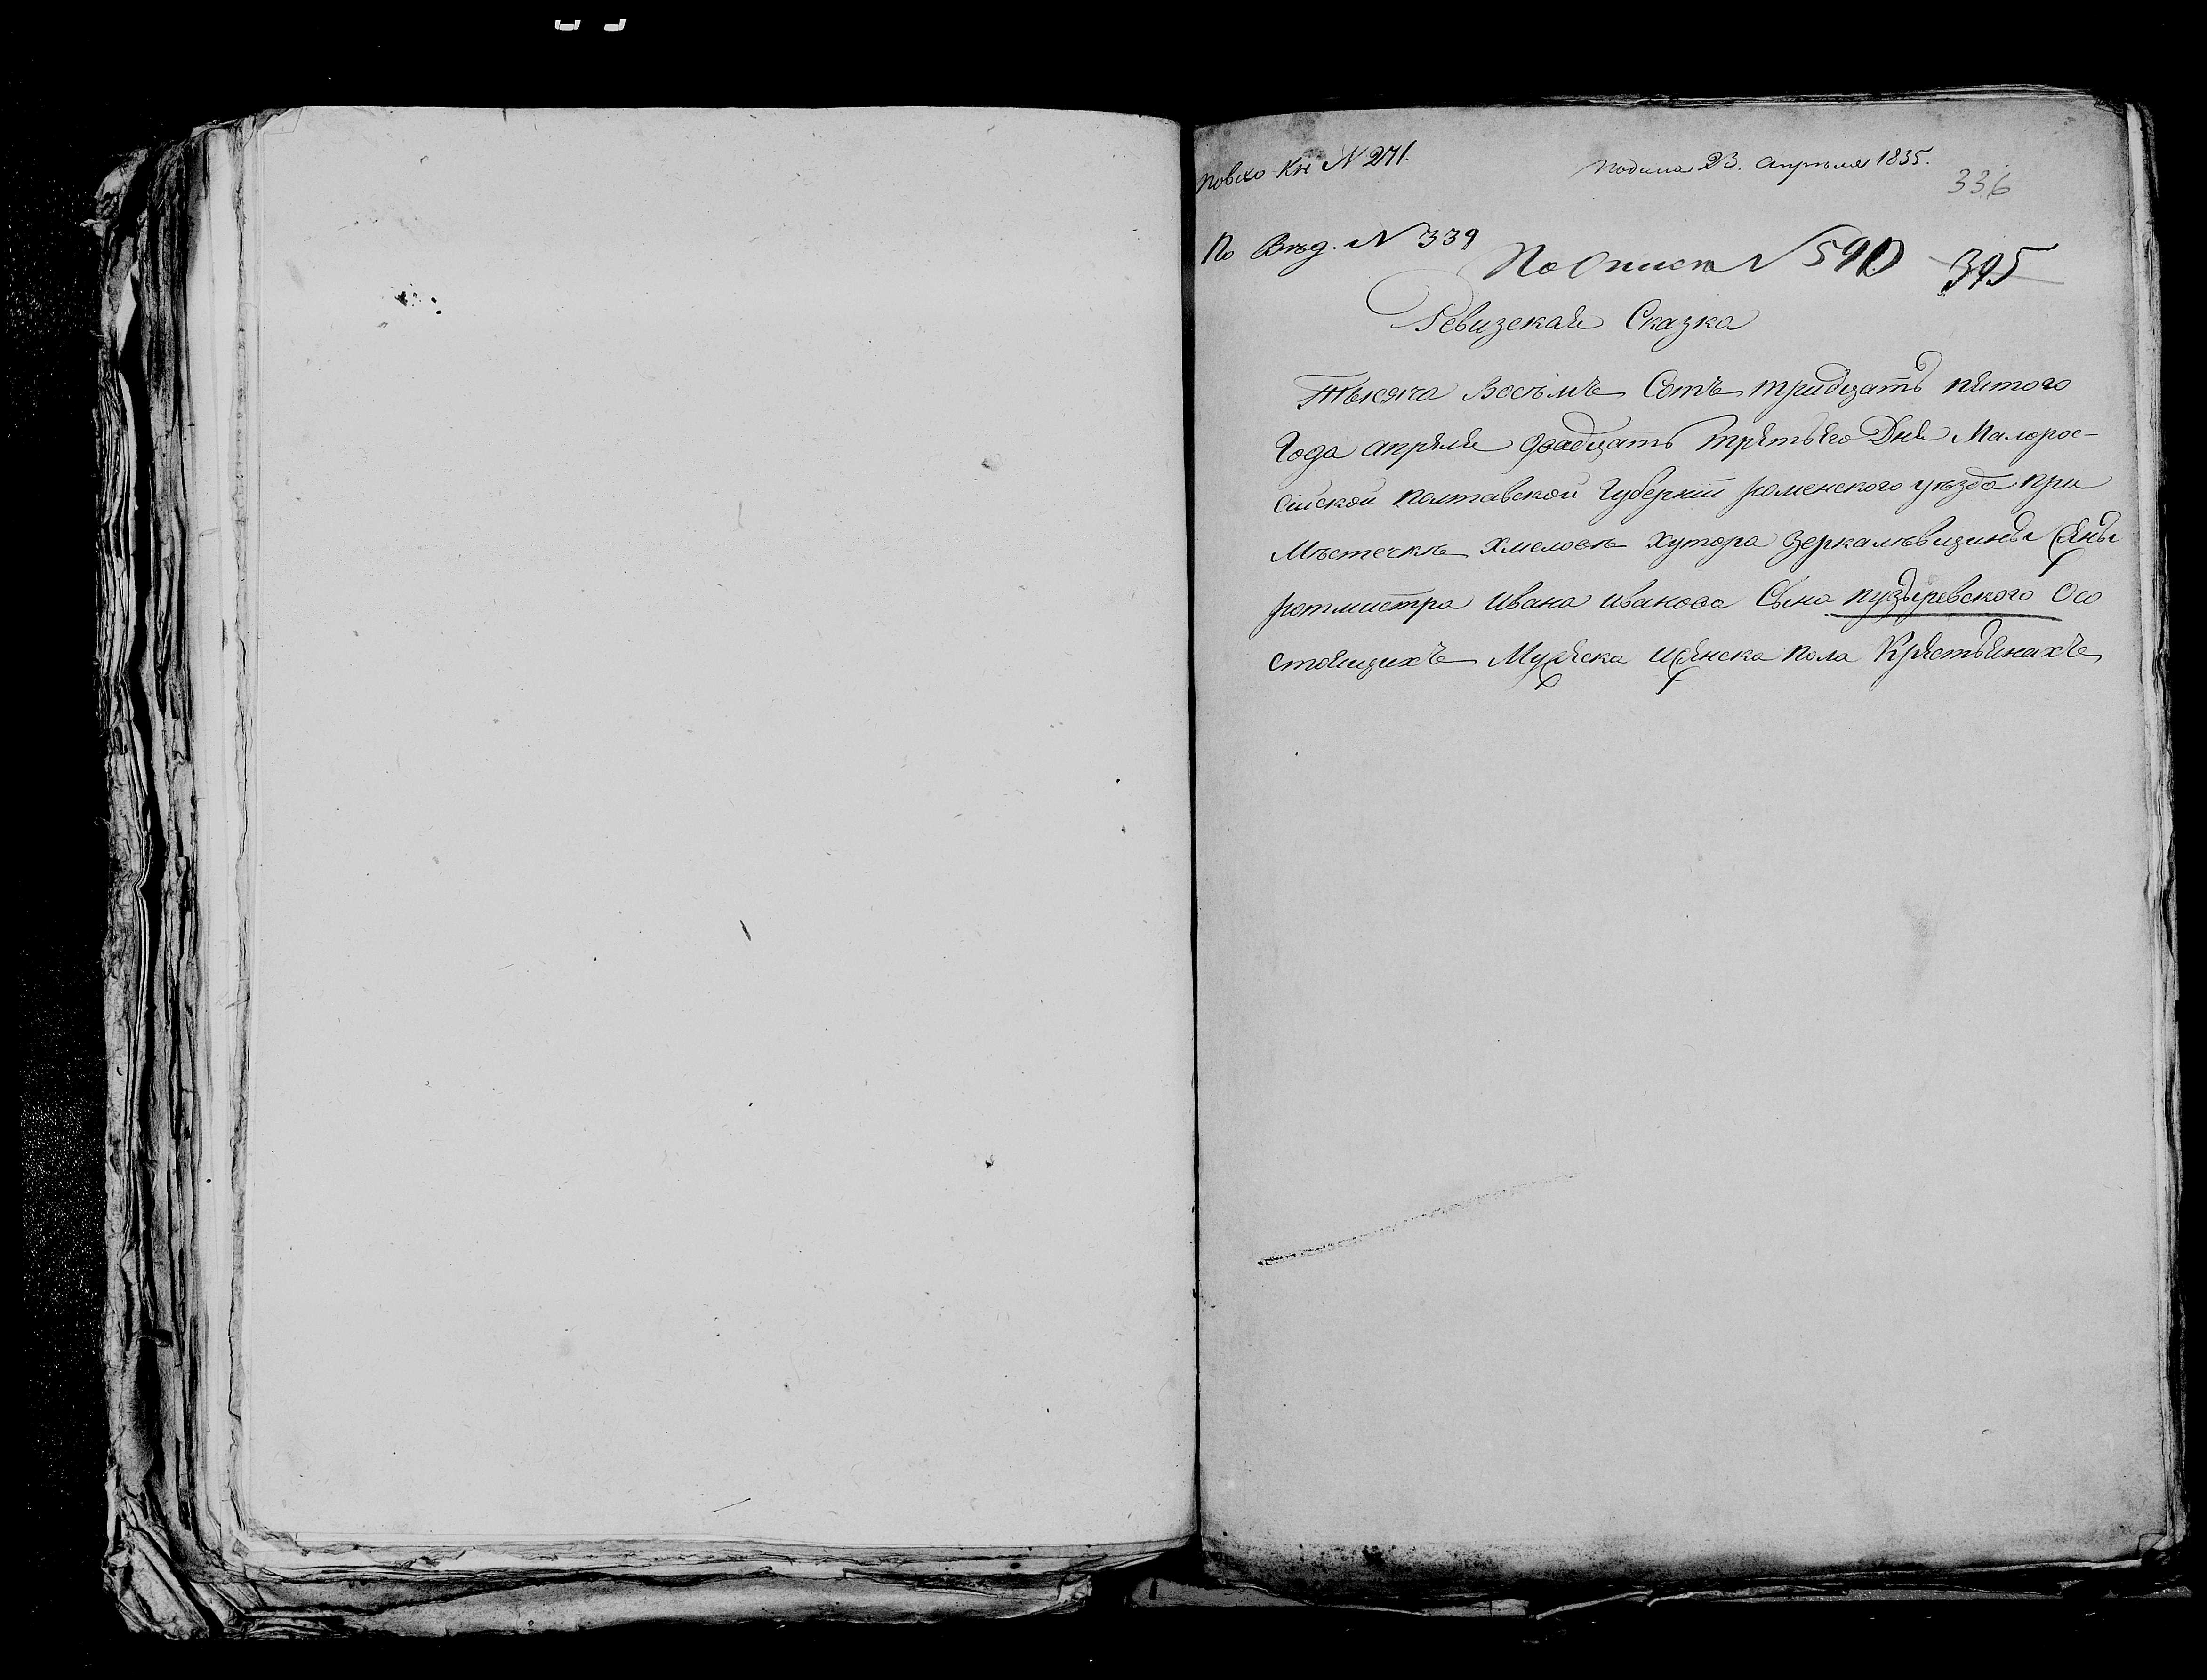 повхо Кн N 271.
Подана 23. Апрѣля 1835.
336
По Вѣд. N 339
По Описи N 590
395
Ревизская Сказка
Тысяча Восѣмъ Сотъ тридцать пятого
Года апреля двадцать третьего Дня Малорос-
сийской полтавской Губернии роменского уѣзда при
Мѣстечкѣ Хмеловѣ хутора Зеркалѣвщины Жены
ротмистра Ивана Иванова Сына пузыревского Осо
стоящихъ Мужеска иженска пола Крестьянахъ